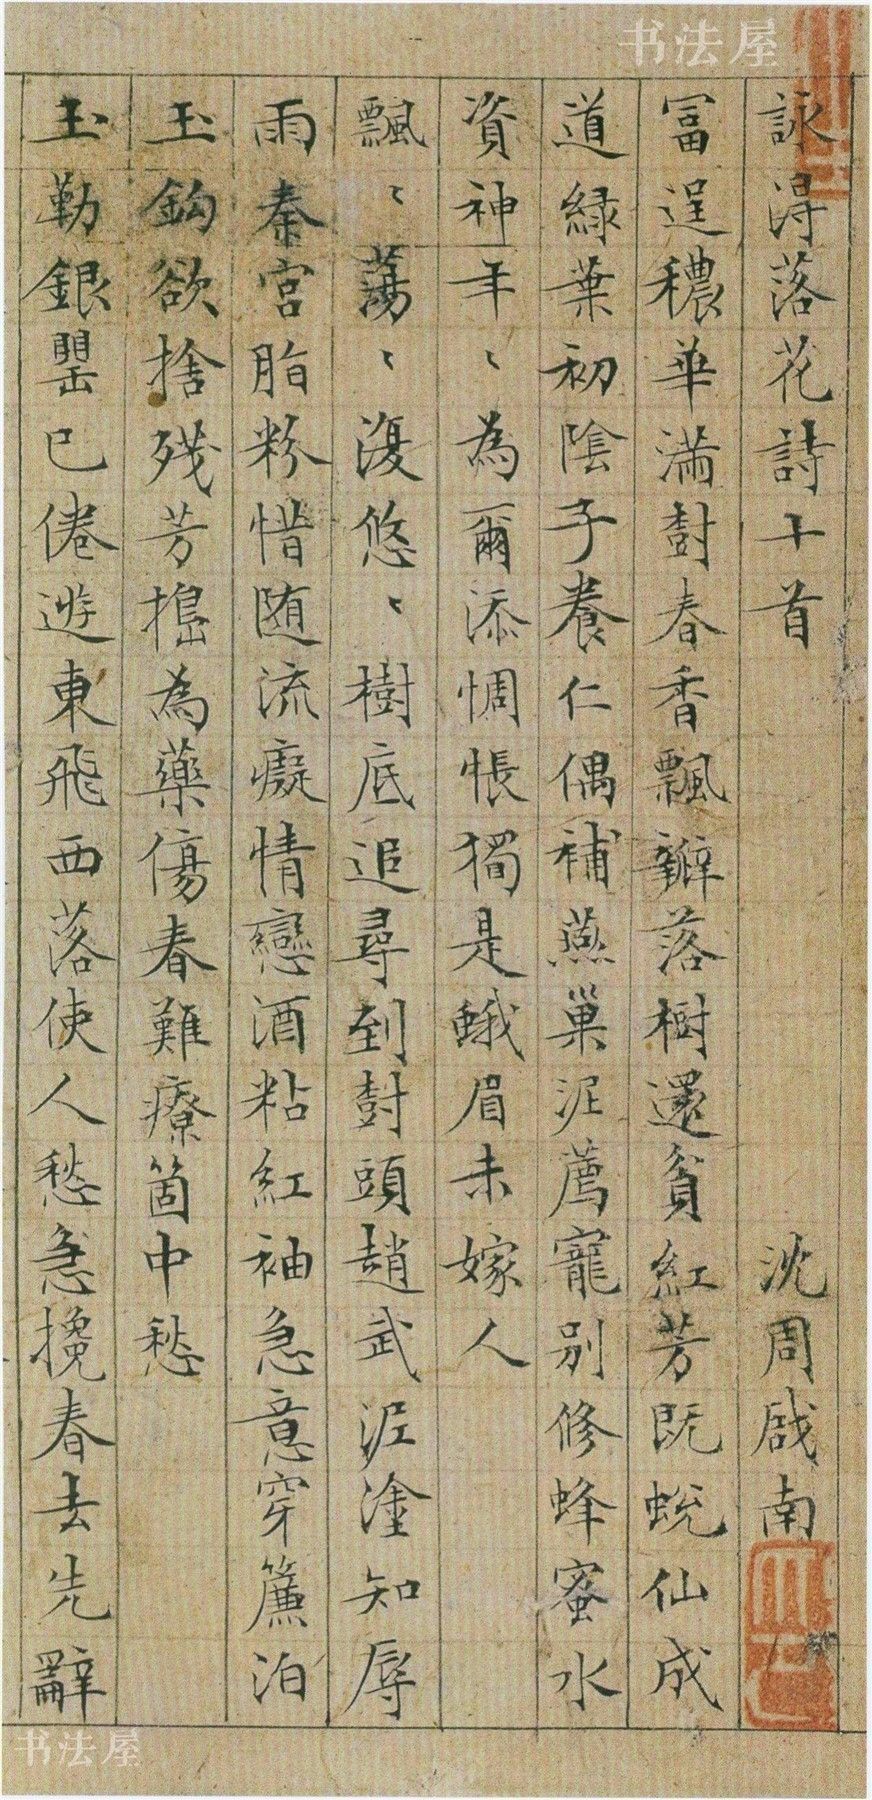 书法屋
詠淂落花詩十首 沈周啟南
冨逞穠華滿樹春香飄瓣落樹還貧紅芳既蛻仙成
道綠葉初陰子養仁偶補燕巢泥薦寵別修蜂蜜水
資神年〻為爾添惆悵獨是蛾眉未嫁人
飄〻蕩〻復悠〻樹底追尋到樹頭趙武泥塗知辱
雨秦宮脂粉惜随流癡情戀酒粘紅袖急意穿簾泊
玉鈎欲捨殘芳搗為藥傷春難療箇中愁
玉勒銀罌已倦遊東飛西落使人愁急攙春去先辭
书法屋